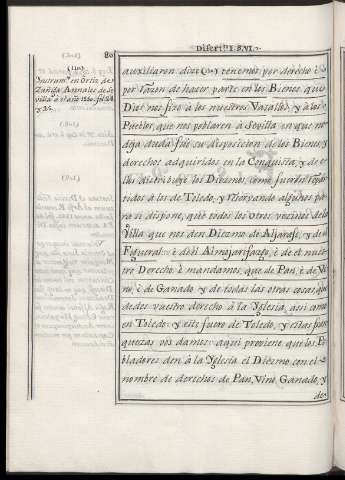 80
Disert.n I. §. VI.
(110)
Instrum.to en Ortiz de
Zuñiga Annales de Se-
villa
auxiliaron dice (110) tenemos por derecho, è
por razon de hacer parte en los Bienes que
Dios nos fizo à los nuestros Vasallos, y à los
Pueblos, que nos poblaren à Sevilla en que no
deja duda fue su disposicion de los Bienes, y
derechos adquiridos en la Conquista, y de e-
llos distribuyò los Diezmos, como fueron repar-
tidos à los de Toledo, y reservando algunos pa-
ra si dispone, que todos los otros vecinos de la
Villa que nos den Diezmo de Aljarafe, y de
Figueral: è del Almojarifazgo, è de el nues-
tro Derecho è mandamos que de Pan, è de Vi-
no, è de Ganado y de todas las otras cosas, que
dedes vuestro derecho à la Yglesia, asi como
en Toledo: y este fuero de Toledo, y estas fran-
quezas vos damos: aqui previene que los Po-
bladores den à la Yglesia el Diezmo con el
nombre de derechos de Pan, Vino, Ganado, y
de